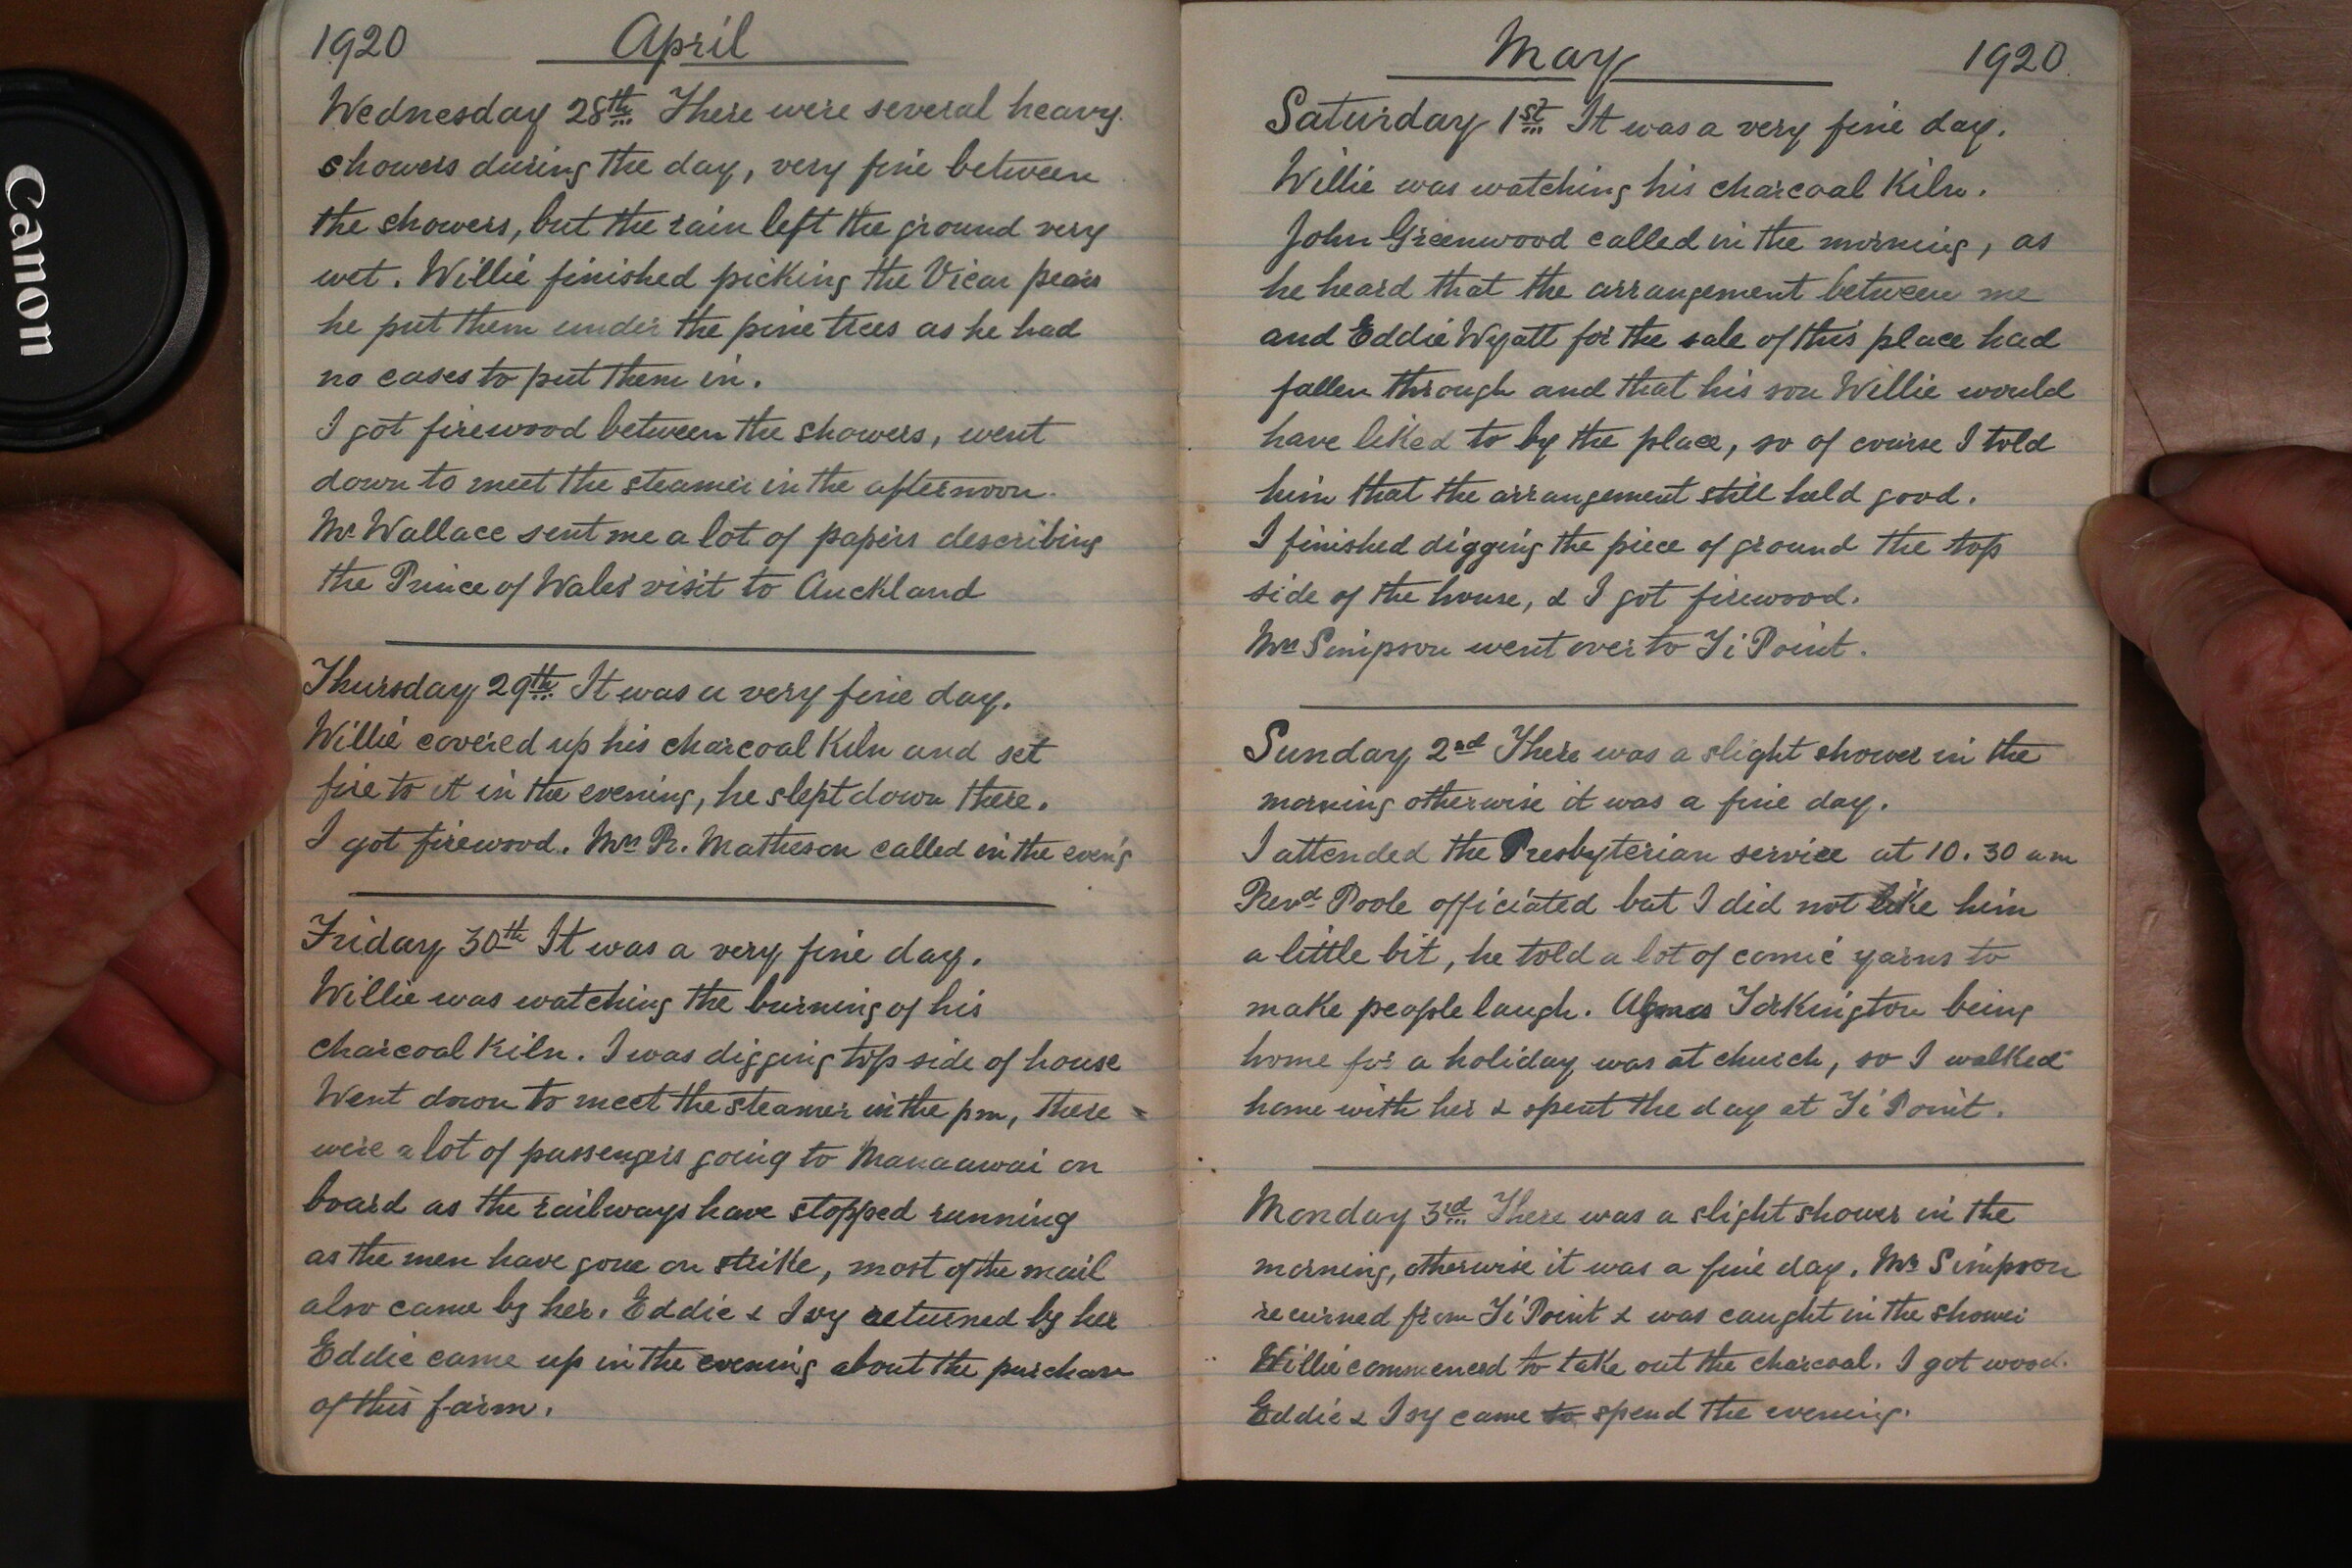 Canon
1920 April
Wednesday 28th There were several heavy
showers during the day, very fine between
the showers, but the rain left the ground very
wet. Willie finished picking the Vicar pears
he put them under the pine trees as he had
no cases to put them in.
I got firewood between the showers, went
down to meet the steamer in the afternoon.
Mr Wallace sent me a lot of papers describing
the Prince of Wales' visit to Auckland
Thursday 29th It was a very fine day.
Willie covered up his charcoal Kiln and set
fire to it in the evening, he slept down there.
I got firewood. Mrs R. Matheson called in the even'g
Friday 30th It was a very fine day.
Willie was watching the burning of his
charcoal Kiln. I was digging top side of house
Went down to meet the steamer in the pm, there
were a lot of passengers going to Manaawai on
board as the railways have stopped running
as the men have gone on strike, most of the mail
also came by her. Eddie & Ivy returned by her
Eddie came up in the evening about the purchase
of this farm.
May 1920
Saturday 1st It was a very fine day.
Willie was watching his charcoal Kiln.
John Greenwood called in the morning, as
he heard that the arrangement between me
and Eddie Wyatt for the sale of this place had
fallen through and that his son Willie would
have liked to by the place, so of course I told
him that the arrangement still held good.
I finished digging the piece of ground the top
side of the house, & I got firewood.
Mrs Simpson went over to Ti Point.
Sunday 2nd There was a slight shower in the
morning otherwise it was a fine day.
I attended the Presbyterian service at 10.30 am
Revd Poole officiated but I did not like him
a little bit, he told a lot of comic yarns to
make people laugh. Torkington being
home for a holiday was at church, so I walked
home with her & spent the day at Ti Point.
Monday 3rd There was a slight shower in the
morning, otherwise it was a fine day. Mrs Simpson
returned from Ti Point & was caught in the shower
Willie commenced to take out the charcoal. I got wood.
Eddie & Ivy came to spend the evening.